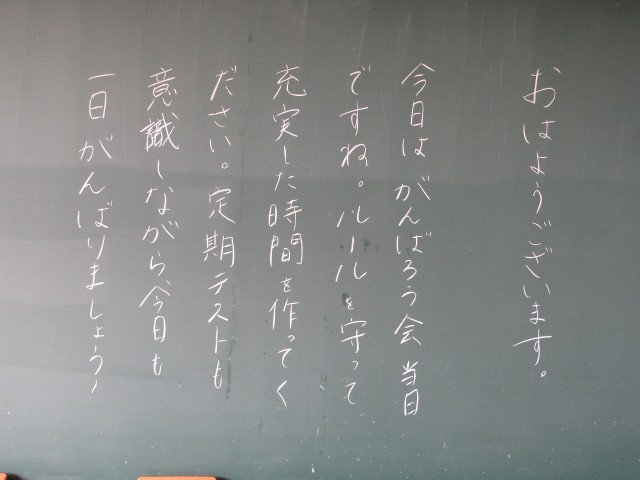 おはようございます。
今日はがんばろう会当日
ですね。ルールを守って
充実した時間を作ってく
ださい。定期テストも
意識しながら今日も
一日がんばりましょう!